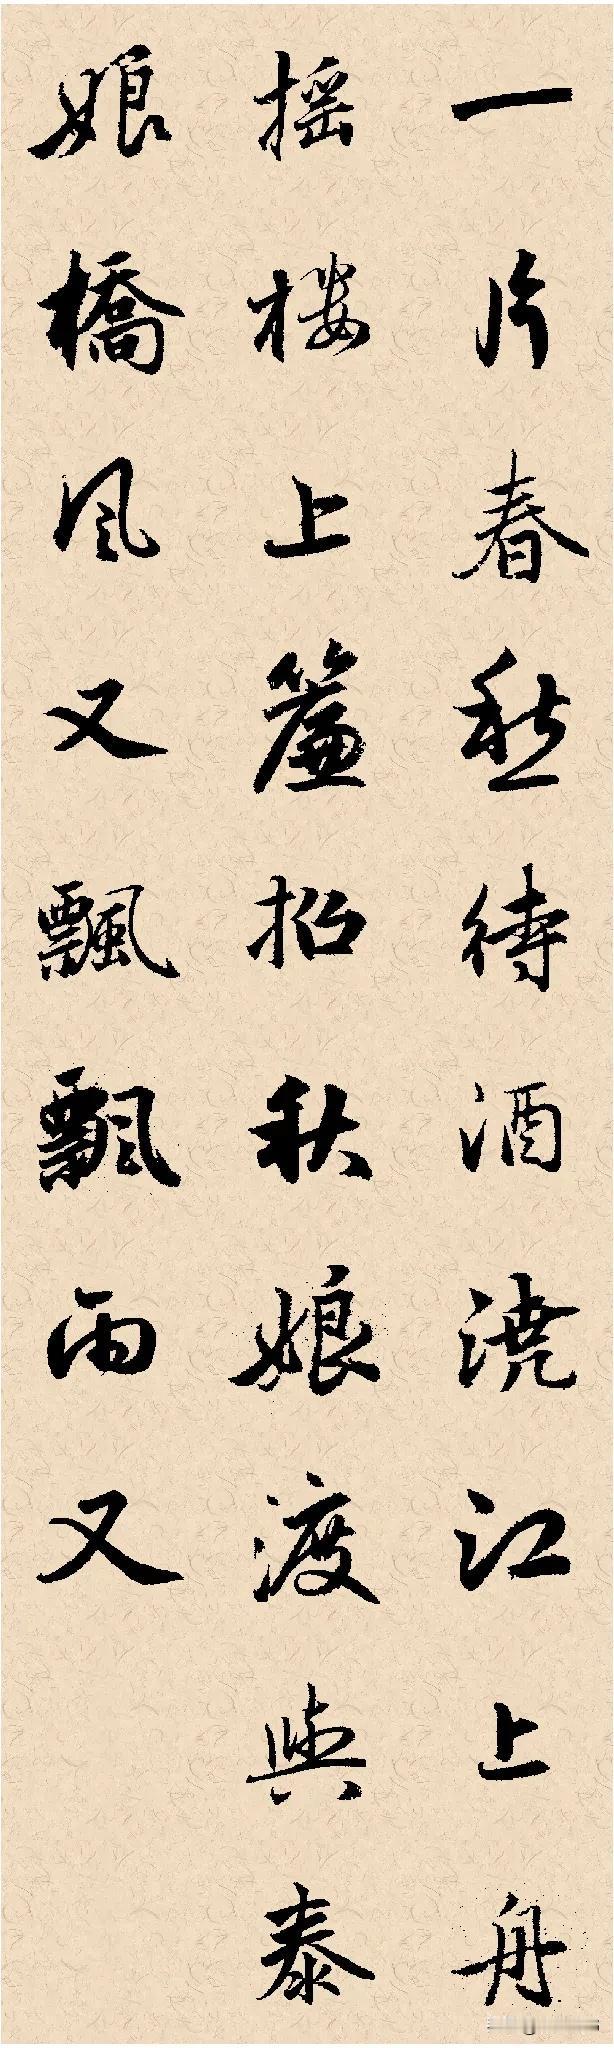 一片春愁待酒浇江上舟
摇楼上簾招秋娘渡與泰
娘橋风又飄飄雨又